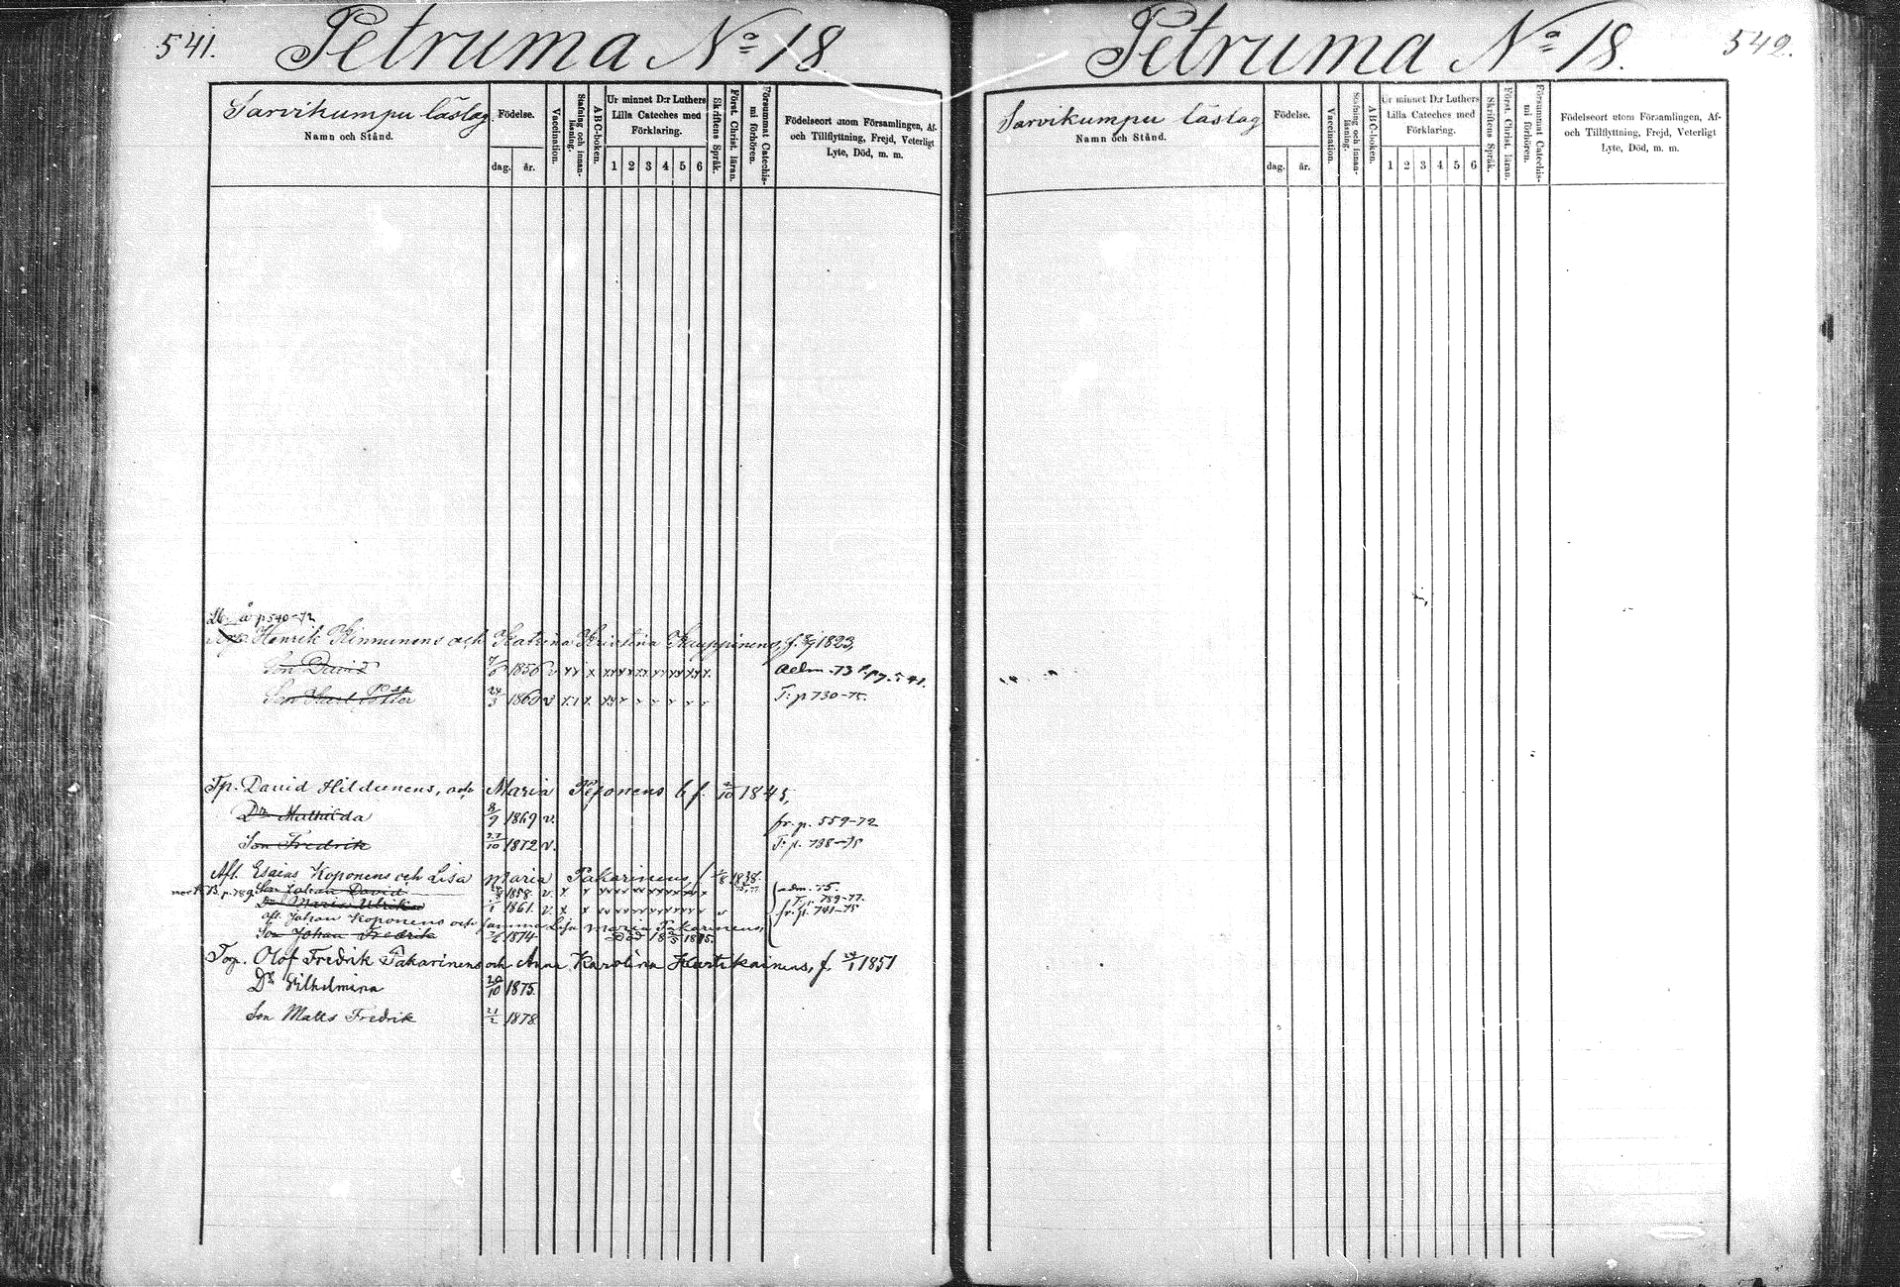 541.
Petruma No 18
Sarvikumpu läslag
Namn och Stånd.
Födelse.
dag.
år.
Vaccination.
Stafning och innan-läsning.
ABC-boken.
Ur minnet D:r Luthers
Lilla Cateches med
Förklaring.
1 2 3 4 5 6
Skriftens Språk.
Först. Christ. läran.
Försummat Catechis-mi förhören.
Födelseort utom Församlingen, Af-
och Tillflyttning, Frejd, Veterligt
Lyte, Död, m. m.
å p 540-72
Henrik Kinnunens och Katrina Kristina Kauppinens, f. 1823,
Son David 1856 v adm. 73
Son Karl Petter 24/3 1860 v T: p 730-75.
Tp. David Hildunens, och Maria Peponens b f. 1845,
Dr Mathilda 8/7 1869 v. fr. p. 559-72
Son Fredrik 27/10 1872 v. T: p. 738-78
Aft. Esaias Koponens och Lisa Maria Pakarinens, f 1838.
p. 789 Son Johan David 1858 v. adm. 75.
Dr Maria Ulrika 1861 v. T. p. 789-77.
fr. p. 741-75
aft. Johan Koponens och samma Lisa Maria Pakarinens,
Son Johan Fredrik 1874 Död 1875.
Top. Olof Fredrik Pakarinens och Anna Karolina Hartikainens, f. 1851
Dr Vilhelmina 20/10 1875.
Son Matts Fredrik 21/2 1878
Petruma No 18.
542.
Sarvikumpu läslag
Namn och Stånd.
Födelse.
dag.
år.
Vaccination.
Stafning och innan-läsning.
ABC-boken.
Ur minnet D:r Luthers
Lilla Cateches med
Förklaring.
1 2 3 4 5 6
Skriftens Språk.
Först. Christ. läran.
Försummat Catechis-mi förhören.
Födelseort utom Församlingen, Af-
och Tillflyttning, Frejd, Veterligt
Lyte, Död, m. m.